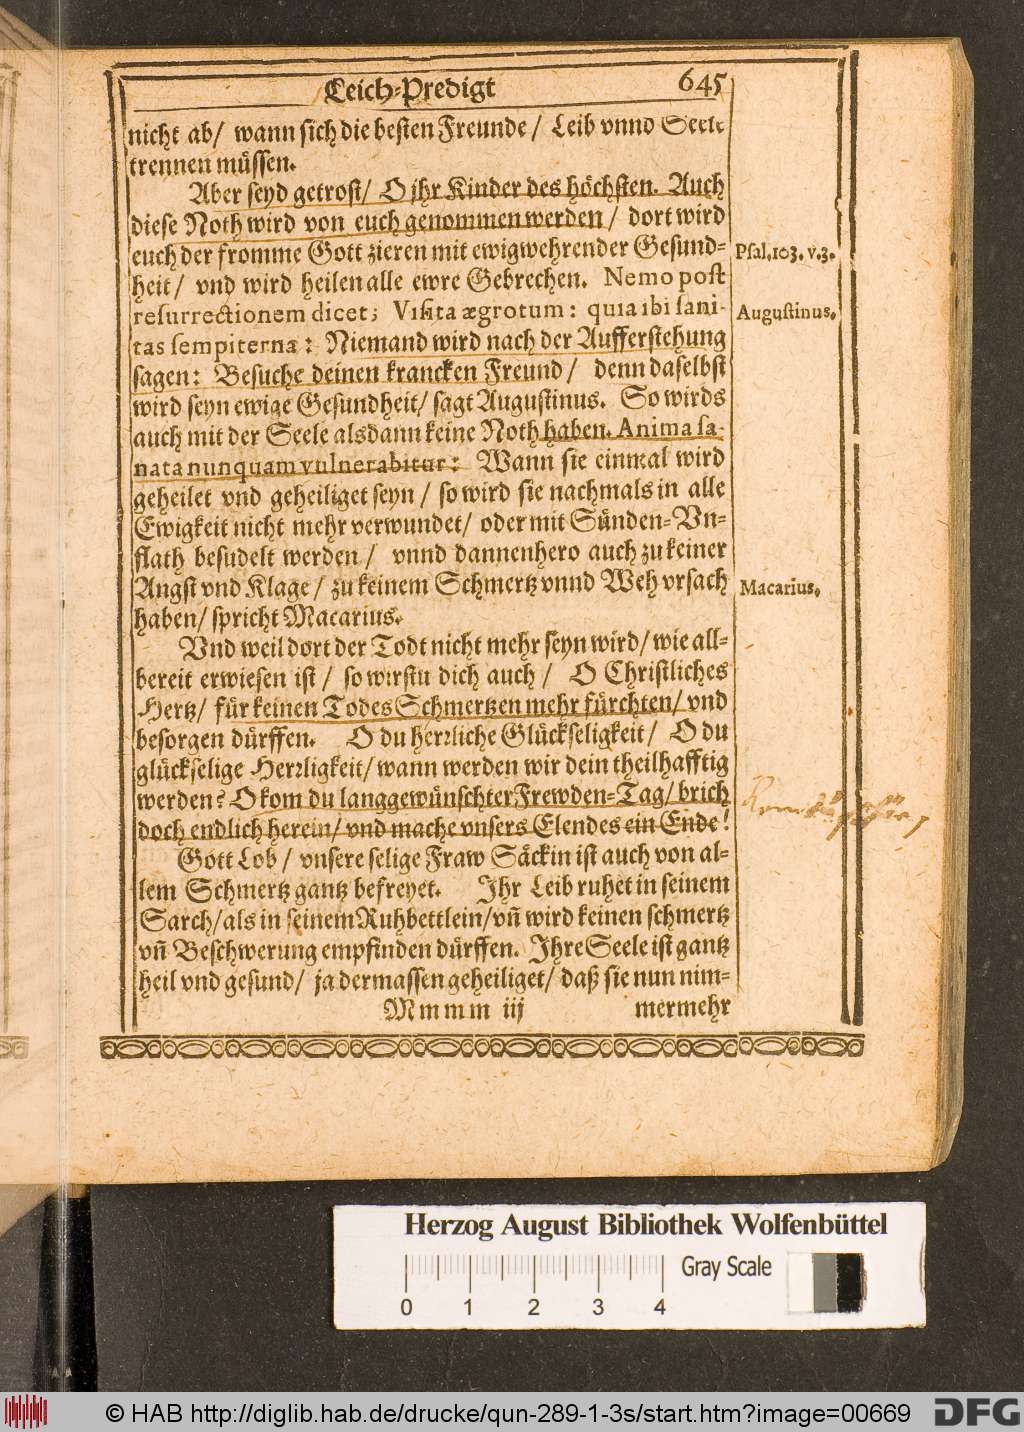 Leich-Predigt 645
nicht ab/ wann sich die besten Freunde/ Leib vnnd Seele
trennen müssen.
Aber seyd getrost/ O jhr Kinder des höchsten. Auch
diese Noth wird von euch genommen werden/ dort wird
euch der fromme Gott zieren mit ewigwehrender Gesund-
Psal. 103. v. 3.
heit/ vnd wird heilen alle ewre Gebrechen. Nemo post
resurrectionem dicet; Visita ægrotum: quia ibi sani-
Augustinus.
tas sempiterna: Niemand wird nach der Aufferstehung
sagen: Besuche deinen krancken Freund/ denn daselbst
wird seyn ewige Gesundheit/ sagt Augustinus. So wirds
auch mit der Seele alsdann keine Noth haben. Anima sa-
nata nunquam vulnerabitur: Wann sie einmal wird
geheilet vnd geheiliget seyn/ so wird sie nachmals in alle
Ewigkeit nicht mehr verwundet/ oder mit Sünden-Vn-
flath besudelt werden/ vnnd dannenhero auch zu keiner
Angst vnd Klage/ zu keinem Schmertz vnnd Weh vrsach
Macarius.
haben/ spricht Macarius.
Vnd weil dort der Todt nicht mehr seyn wird/ wie all-
bereit erwiesen ist/ so wirstu dich auch/ O Christliches
Hertz/ für keinen Todes Schmertzen mehr fürchten/ vnd
besorgen dürffen. O du herrliche Glückseligkeit/ O du
glückselige Herrligkeit/ wann werden wir dein theilhafftig
werden? O kom du langgewünschter Frewden-Tag/ brich
doch endlich herein/ vnd mache vnsers Elendes ein Ende!
Gott Lob/ vnsere selige Fraw Säckin ist auch von al-
lem Schmertz gantz befreyet. Jhr Leib ruhet in seinem
Sarch/ als in seinem Ruhbettlein/ vñ wird keinen schmertz
vñ Beschwerung empfinden dürffen. Jhre Seele ist gantz
heil vnd gesund/ ja dermassen geheiliget/ daß sie nun nim-
Mmmm iij mermehr
Herzog August Bibliothek Wolfenbüttel
Gray Scale
0 1 2 3 4
© HAB http://diglib.hab.de/drucke/qun-289-1-3s/start.htm?image=00669
DFG